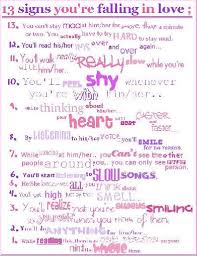 13 signs you're falling in love ;
13. You can't stay mad at him/her for more than a minute
or two. You actually have to try HARD to stay mad.
12. You'll read his/her over and over again...
11. You'll walk really REALLY slow while you're
with him/her.
10. You'll FEEL shy whenever
you're with him/her..
9. thinking about him/her
your heart will beat faster
faster.
8. By Listening to his/her VOICE, you'll SMILE
for no reason.
7. While at him/her, you Can't see the other
people around you...
6. You'll start listening to SLOW SONGS.
5. He/She becomes all you
3. You'll realize you're SMILING
yourselves when you think of them.
2. You'll do ANYTHING for him/her
1. While reading this, there was
mind... whole time